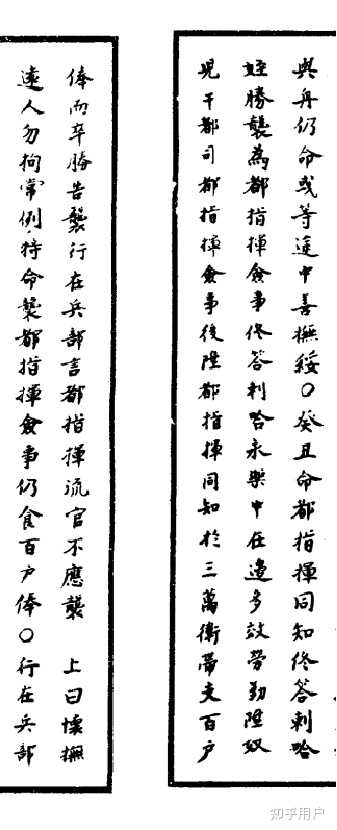 與舟仍命或等途中善撫綏○癸丑命都指揮同知佟答剌哈
姪勝襲為都指揮僉事佟答剌哈永樂中任邊多效勞勩陞奴
兒干都司都指揮僉事後陞都指揮同知於三萬衛帶支百户
俸而卒勝告襲行在兵部言都指揮流官不應襲 上曰懷撫
遠人勿拘常例特命襲都指揮僉事仍食百户俸○行在兵部
知乎用户